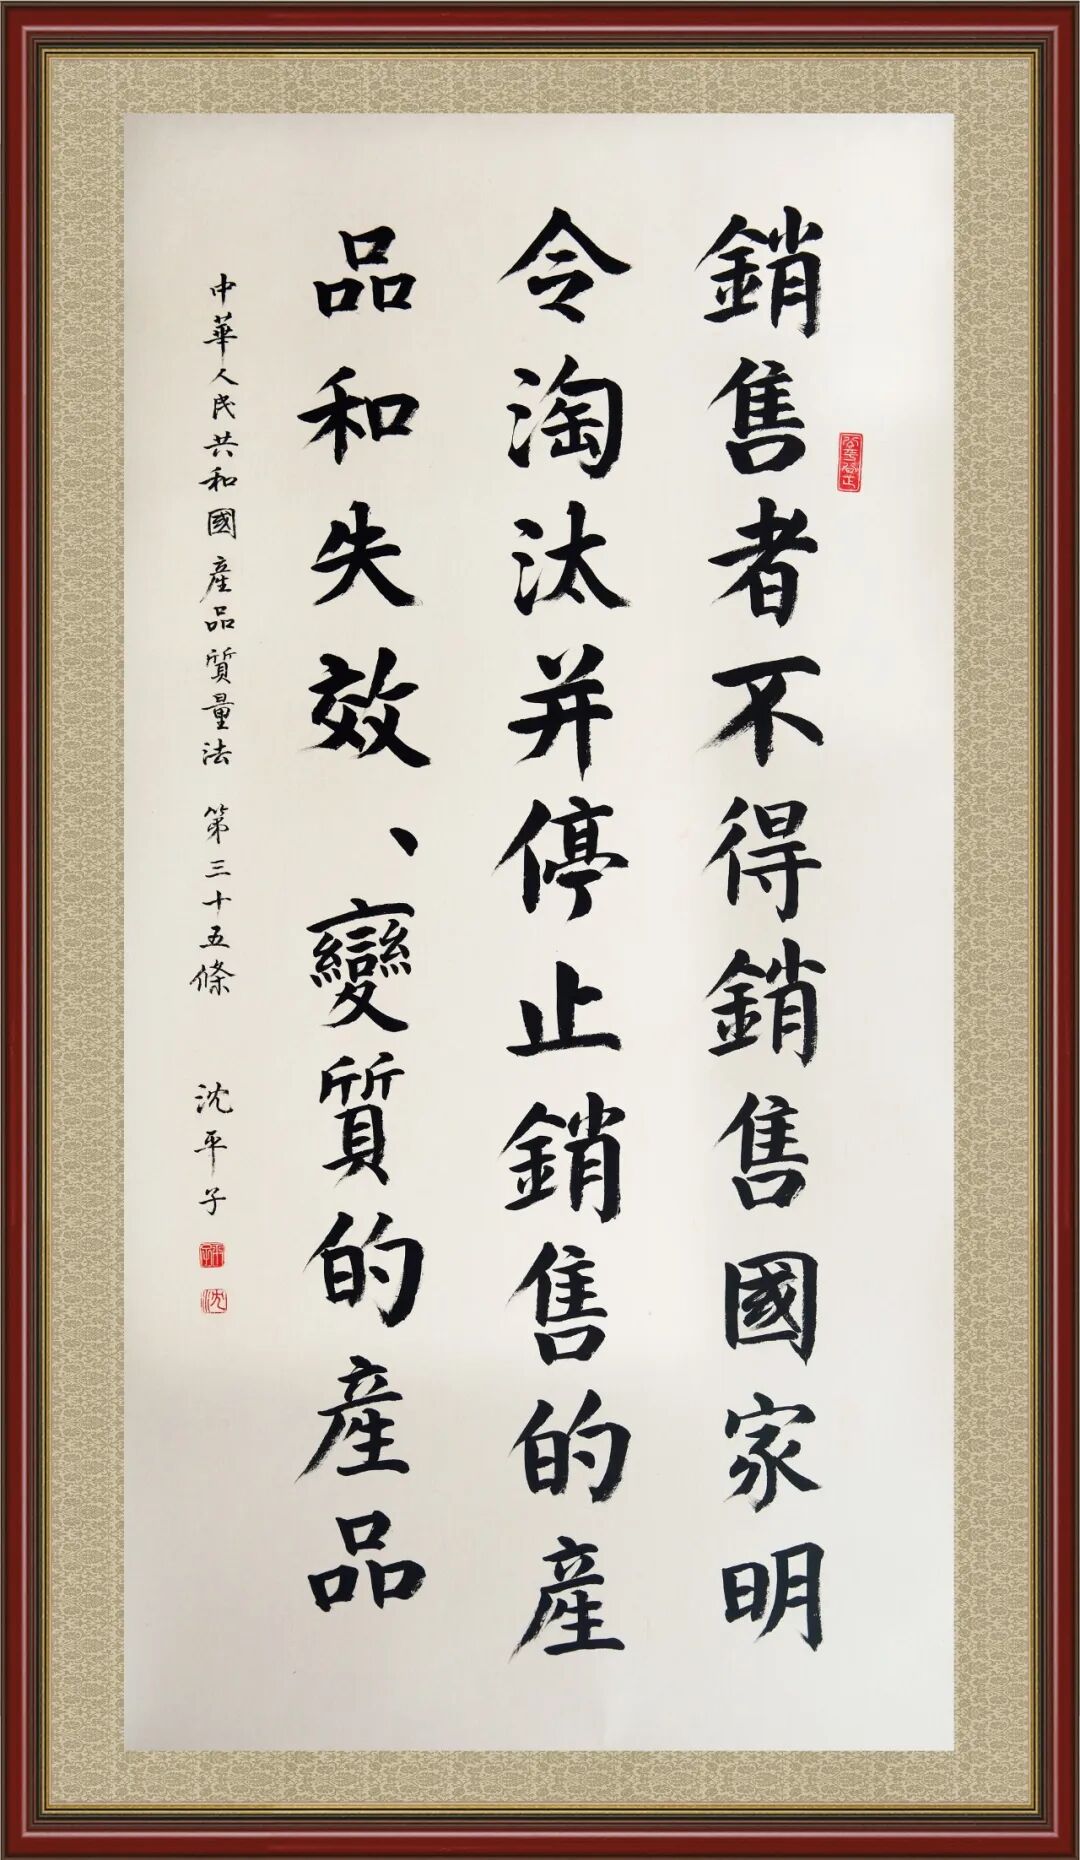 銷售者不得銷售國家明
令淘汰并停止銷售的產
品和失效、變質的產品
中華人民共和國產品質量法 第三十五條 沈平子